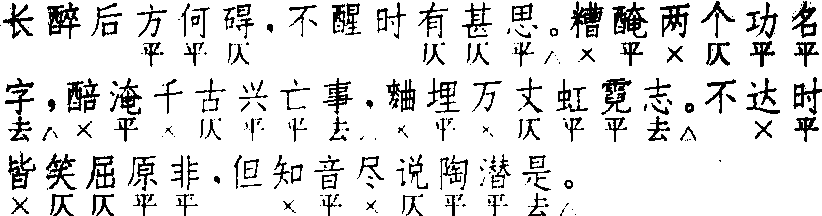 长醉后方何碍，不醒时有甚思。糟醃两个功名
平平仄 仄仄平△×平×仄平平
字，醅淹千古兴亡事，麯埋万丈虹霓志。不达时
去△×平×仄平平去△×平×仄平平去△ ×平
皆笑屈原非，但知音尽说陶潜是。
×仄仄平平 ×平×仄平平去△